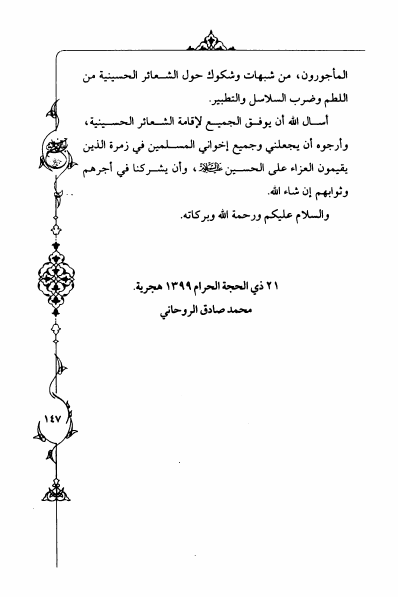 المأجورون، من شبهات وشكوك حول الشعائر الحسينية من
اللطم وضرب السلاسل والتطبير.
أسال الله أن يوفق الجميع لإقامة الشعائر الحسينية،
وأرجوه أن يجعلني وجميع إخواني المسلمين في زمرة الذين
يقيمون العزاء على الحسين، وأن يشركنا في أجرهم
وثوابهم إن شاء الله.
والسلام عليكم ورحمة الله وبركاته.
٢١ ذي الحجة الحرام ١٣٩٩ هجرية.
محمد صادق الروحاني
١٤٧